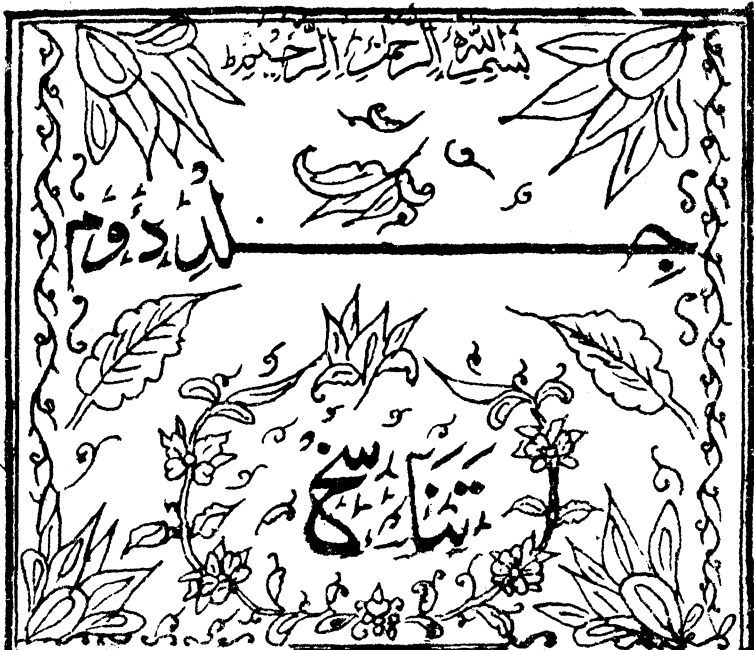 بسم الله الرحمن الرحيم
جلد دوم
تناسخ